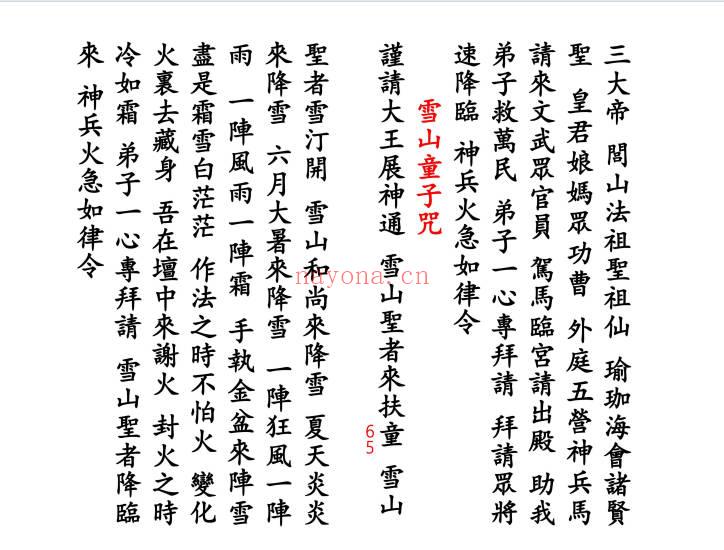 三大帝 閭山法祖聖祖仙 瑜珈海會諸賢
聖 皇君娘媽眾功曹 外庭五營神兵馬
請來文武眾官員 駕馬臨宮請出殿 助我
弟子救萬民 弟子一心專拜請 拜請眾將
速降臨 神兵火急如律令
雪山童子咒
謹請大王展神通 雪山聖者來扶童 雪山
聖者雪汀開 雪山和尚來降雪 夏天炎炎
來降雪 六月大暑來降雪 一陣狂風一陣
雨 一陣風雨一陣霜 手執金盆來陣雪
盡是霜雪白茫茫 作法之時不怕火 變化
火裏去藏身 吾在壇中來謝火 封火之時
冷如霜 弟子一心專拜請 雪山聖者降臨
來 神兵火急如律令
65
nayona.cn